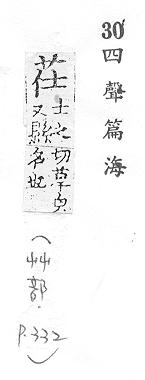 30四聲篇海
茌
士之切草皃
又縣名也
(艸部. P.332)